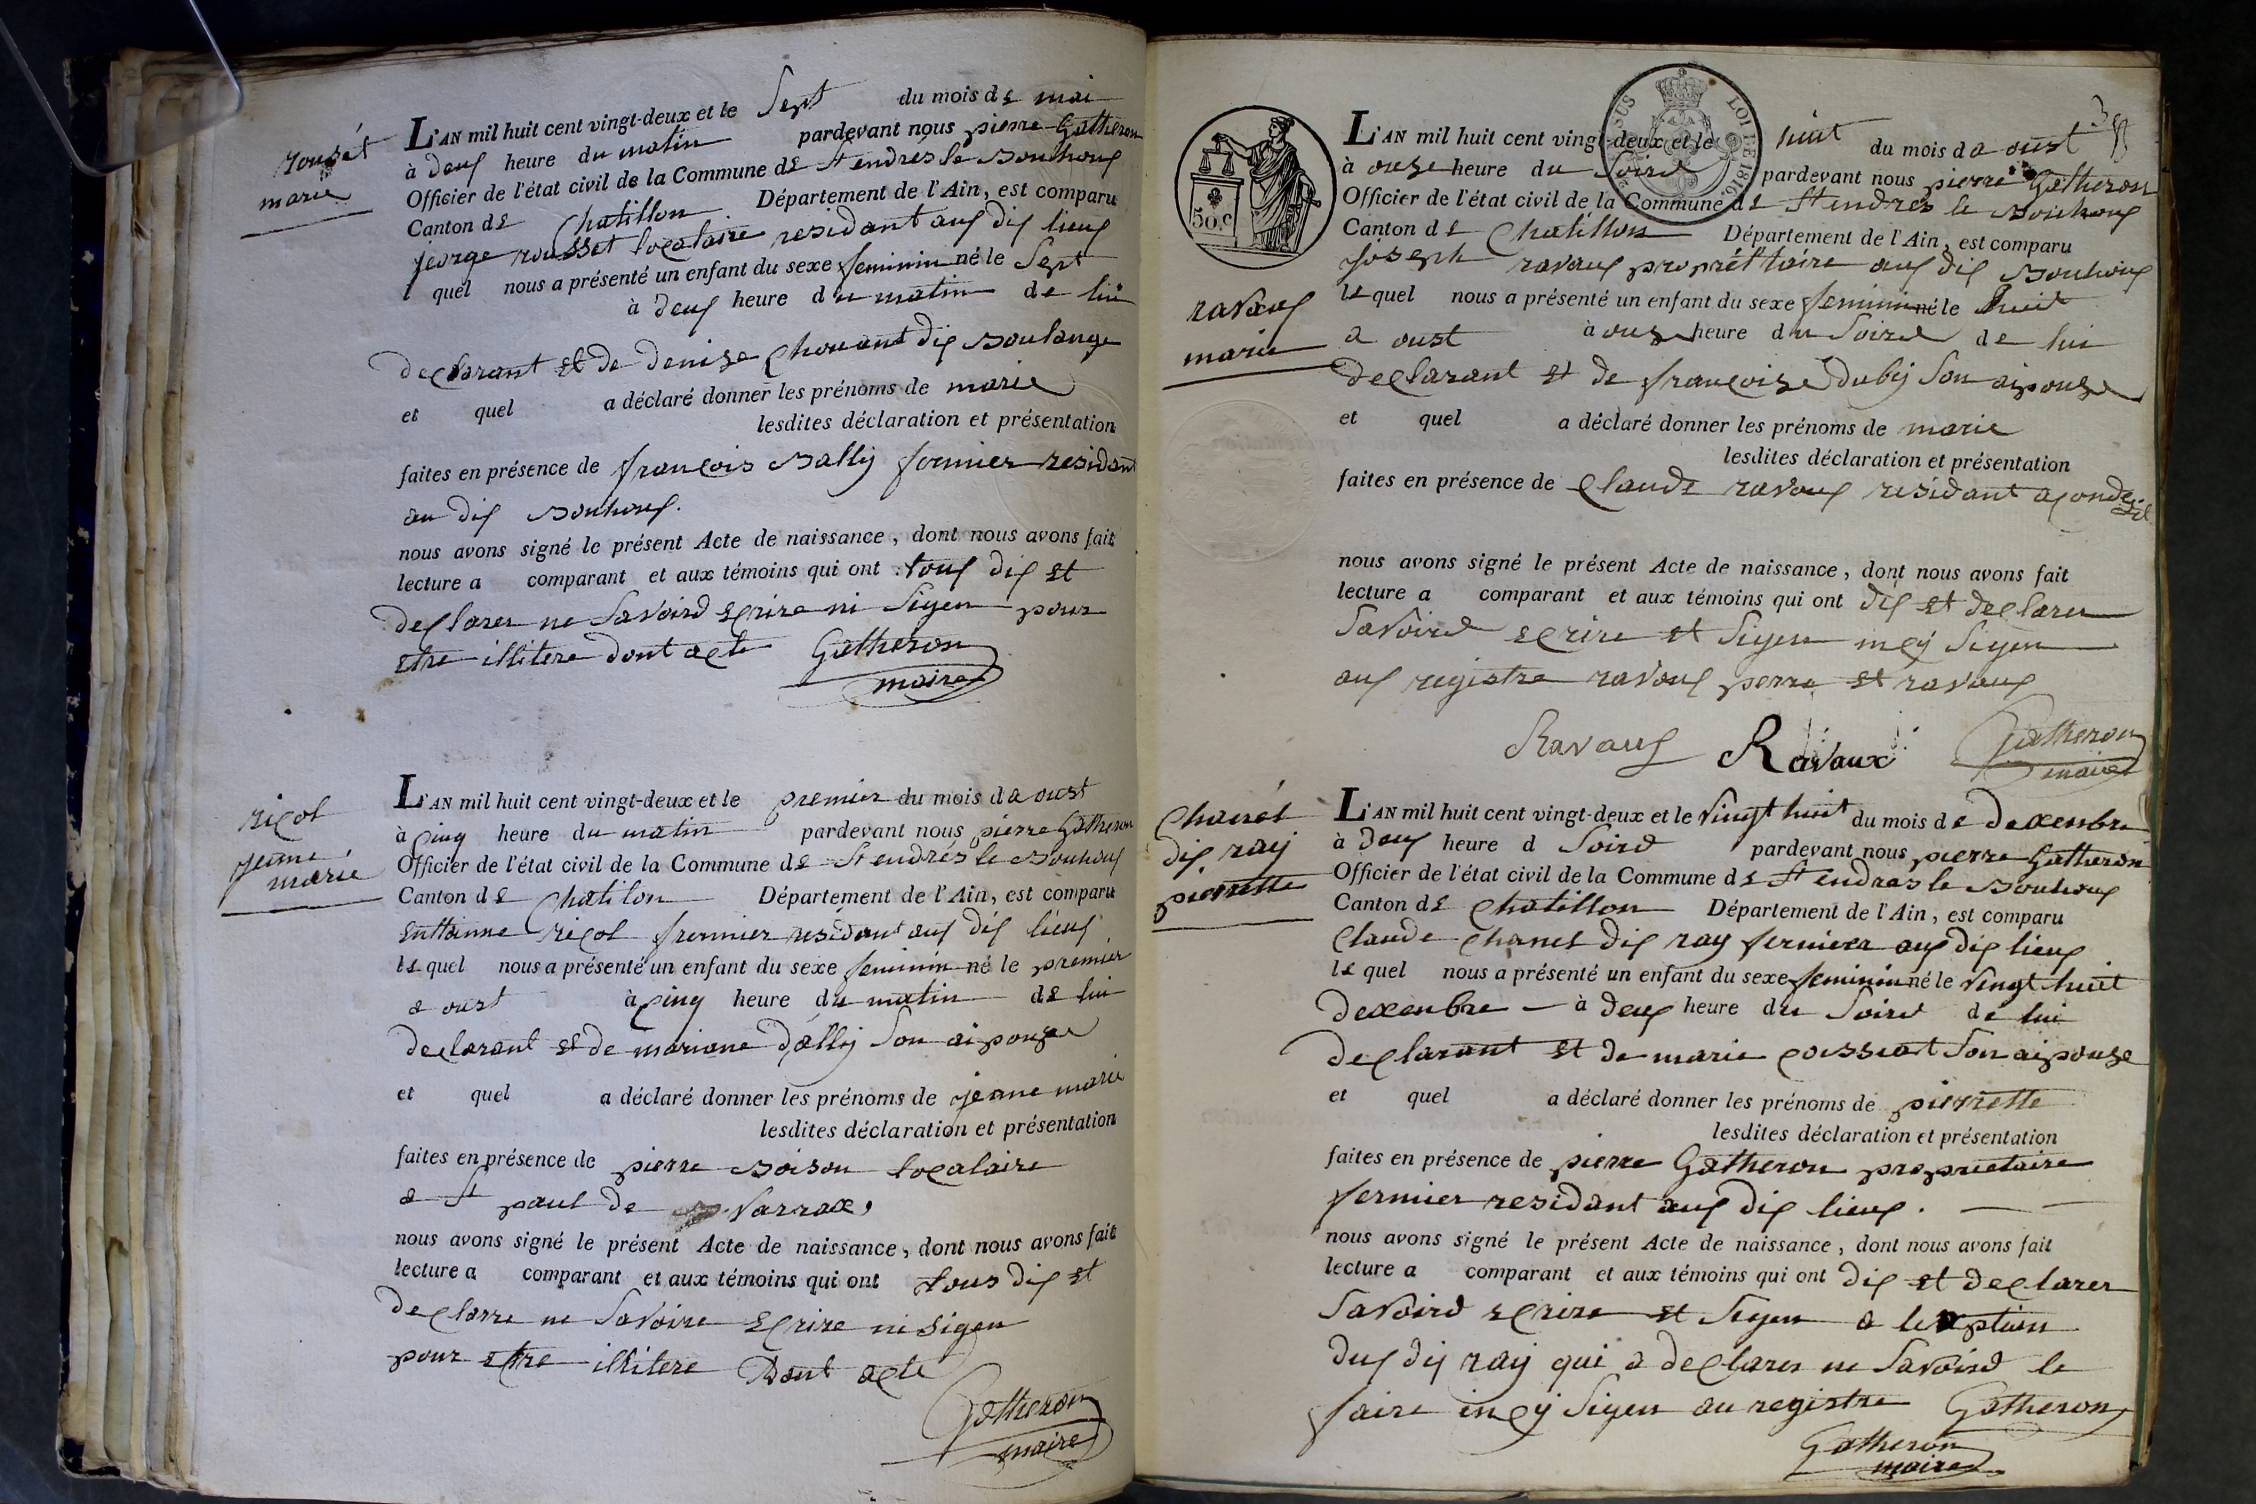 rousét
marie
L'AN mil huit cent vingt-deux et le Sept du mois de mai
à deux heure du matin pardevant nous pierre Gatheron
Officier de l'état civil de la Commune de St endrés le Bouhoux
Canton de Chatillon Département de l'Ain, est comparu
jeorge rousset localaire residant aux dis lieux
l quel nous a présenté un enfant du sexe feminin né le Sept
à deux heure du matin de lui
declarant et de denise Chouant dis Boulange
et quel a déclaré donner les prénoms de marie
lesdites déclaration et présentation
faites en présence de françois Bally fermier residant
au dis Bouhoux.
nous avons signé le présent Acte de naissance, dont nous avons fait
lecture a comparant et aux témoins qui ont tous dis et
declarer ne Savoird ecrire ni Sigen pour
etre illitere dont acte Gatheron
maire
ricol
jenne
marie
L'AN mil huit cent vingt-deux et le premier du mois da oust
à cinq heure du matin pardevant nous pierre Gatheron
Officier de l'état civil de la Commune de St endrés le Bouhoux
Canton de Chatilon Département de l'Ain, est comparu
ricol fermier residant aux dis lieux
le quel nous a présenté un enfant du sexe feminin né le premier
a oust à cinq heure du matin de lui
declarant et de mariane dally Son aipouse
et quel a déclaré donner les prénoms de jenne marie
lesdites déclaration et présentation
faites en présence de pierre Boison localaire
a St paul de Varrax,
nous avons signé le présent Acte de naissance, dont nous avons fait
lecture a comparant et aux témoins qui ont tous dis et
declarre ne Savoire ecrire ni sigen
pour etre illitere Dont acte
Gatheron
maire
50.c
LOI DE 1816.
35
L'AN mil huit cent vingt-deux et le huit du mois da oust
à ouse heure du Soird pardevant nous pierre Gatheron
Officier de l'état civil de la Commune de St endres le Bouhoux
Canton de Chatillon Département de l'Ain, est comparu
Joseph ravaux propréttaire aux dis Bouhoux
ravaux
marie
le quel nous a présenté un enfant du sexe feminin né le huit
a oust à ouse heure du Soird de lui
declarant et de françoise duby Son aipouse
et quel a déclaré donner les prénoms de marie
lesdites déclaration et présentation
faites en présence de Claude ravoux residant a
nous avons signé le présent Acte de naissance, dont nous avons fait
lecture a comparant et aux témoins qui ont dis et declarer
Savoird ecrire et Sigen incy Sigen
aux registre ravoux perre et ravaux
Ravaux Ravaux Gatheron
maire
Chanel
dis ray
pierrette
L'AN mil huit cent vingt-deux et le vingt huit du mois de dexenbre
à deux heure d Soird pardevant nous pierre Gatheron
Officier de l'état civil de la Commune de St endres le Bouhoux
Canton de Chatillon Département de l'Ain, est comparu
Claude Chanel dis ray fermier aux dis lieux
le quel nous a présenté un enfant du sexe feminin né le vingt huit
dexenbre à deux heure du Soird de lui
declarant et de marie coissiat Son aipouse
et quel a déclaré donner les prénoms de pierrette
lesdites déclaration et présentation
faites en présence de pierre Gatheron proprietaire
fermier residant aux dis lieux.
nous avons signé le présent Acte de naissance, dont nous avons fait
lecture a comparant et aux témoins qui ont dis et declarer
Savoird ecrire et Sigen a
dux dis ray qui a declarer ne Savoird le
faire incy Sigen au registre Gatheron
Gatheron
maire